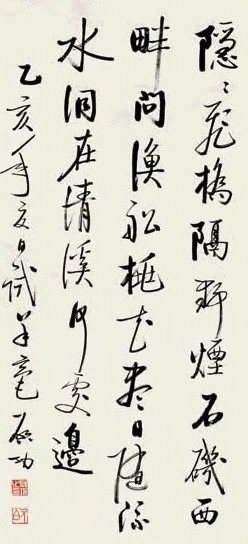 隱〻飛橋隔野煙石磯西
畔問漁船桃花盡日隨流
水洞在清溪何處邊
乙亥年夏日試羊毫 啟功